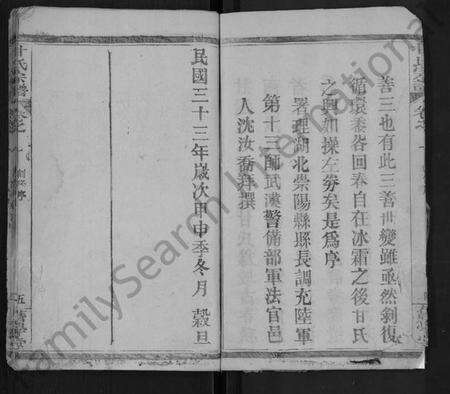 善三也有此三善世變雖亟然剝復
循環黍谷回春自在冰霜之後甘氏
之興如操左券矣是爲序
署理湖北崇陽縣縣長調充陸軍
第十三師武漢警備部軍法官邑
人沈汝喬拜撰
民國三十三年歲次甲申季冬月 穀旦
甘氏宗譜 卷之
五
FamilySearch International